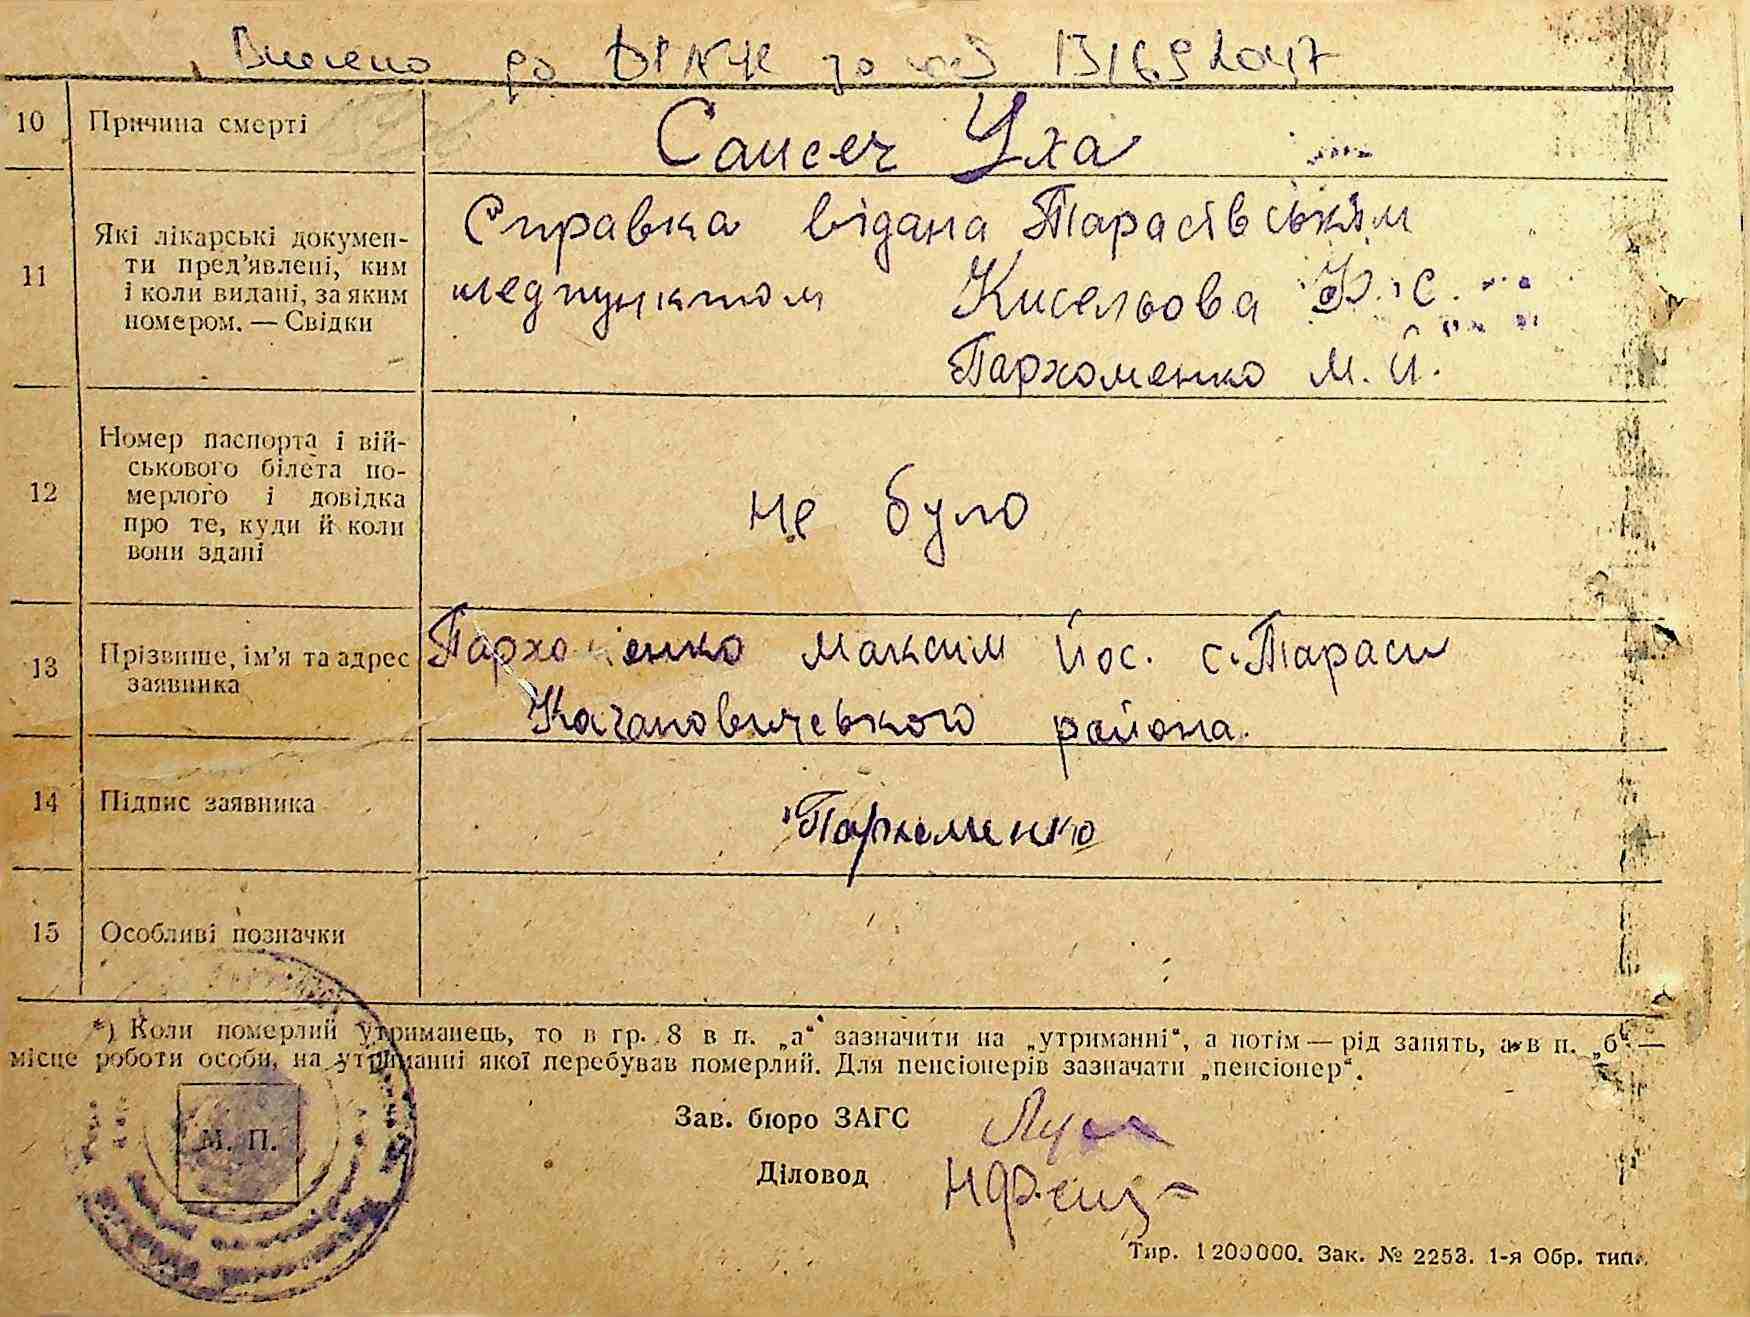 Внесено до ДРАЦС за
10 Причина смерті
Сансеч Уха
11 Які лікарські докумен-
ти пред’явлені, ким
і коли видані, за яким
номером. — Свідки
Справка відана Тарасівським
медпунктом Кисельова Ф. С.
Пархоменко М. Й.
12 Номер паспорта і вій-
ськового білета по-
мерлого і довідка
про те, куди й коли
вони здані
не було
13 Прізвище, ім’я та адрес
заявника
Пархоменко Максим Йос. с. Тараси
Кагановичського района.
14 Підпис заявника
Пархоменко
15 Особливі позначки
*) Коли померлий утриманець, то в гр. 8 в п. „а“ зазначити на „утриманні“, а потім — рід занять, а в п. „б“ —
місце роботи особи, на утриманні якої перебував померлий. Для пенсіонерів зазначати „пенсіонер“.
М. П.
Зав. бюро ЗАГС
Діловод
Тир. 1200000. Зак. № 2253. 1-я Обр. тип.